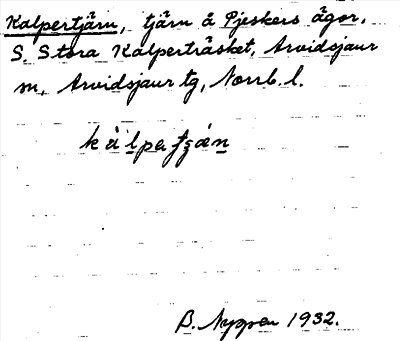 Kalpertjärn, tjärn å Pjeskers ägor,
S. Stora Kalperträsket, Arvidsjaur
m, Arvidsjaur tg, Norrb. l.
B. Nygren 1932.